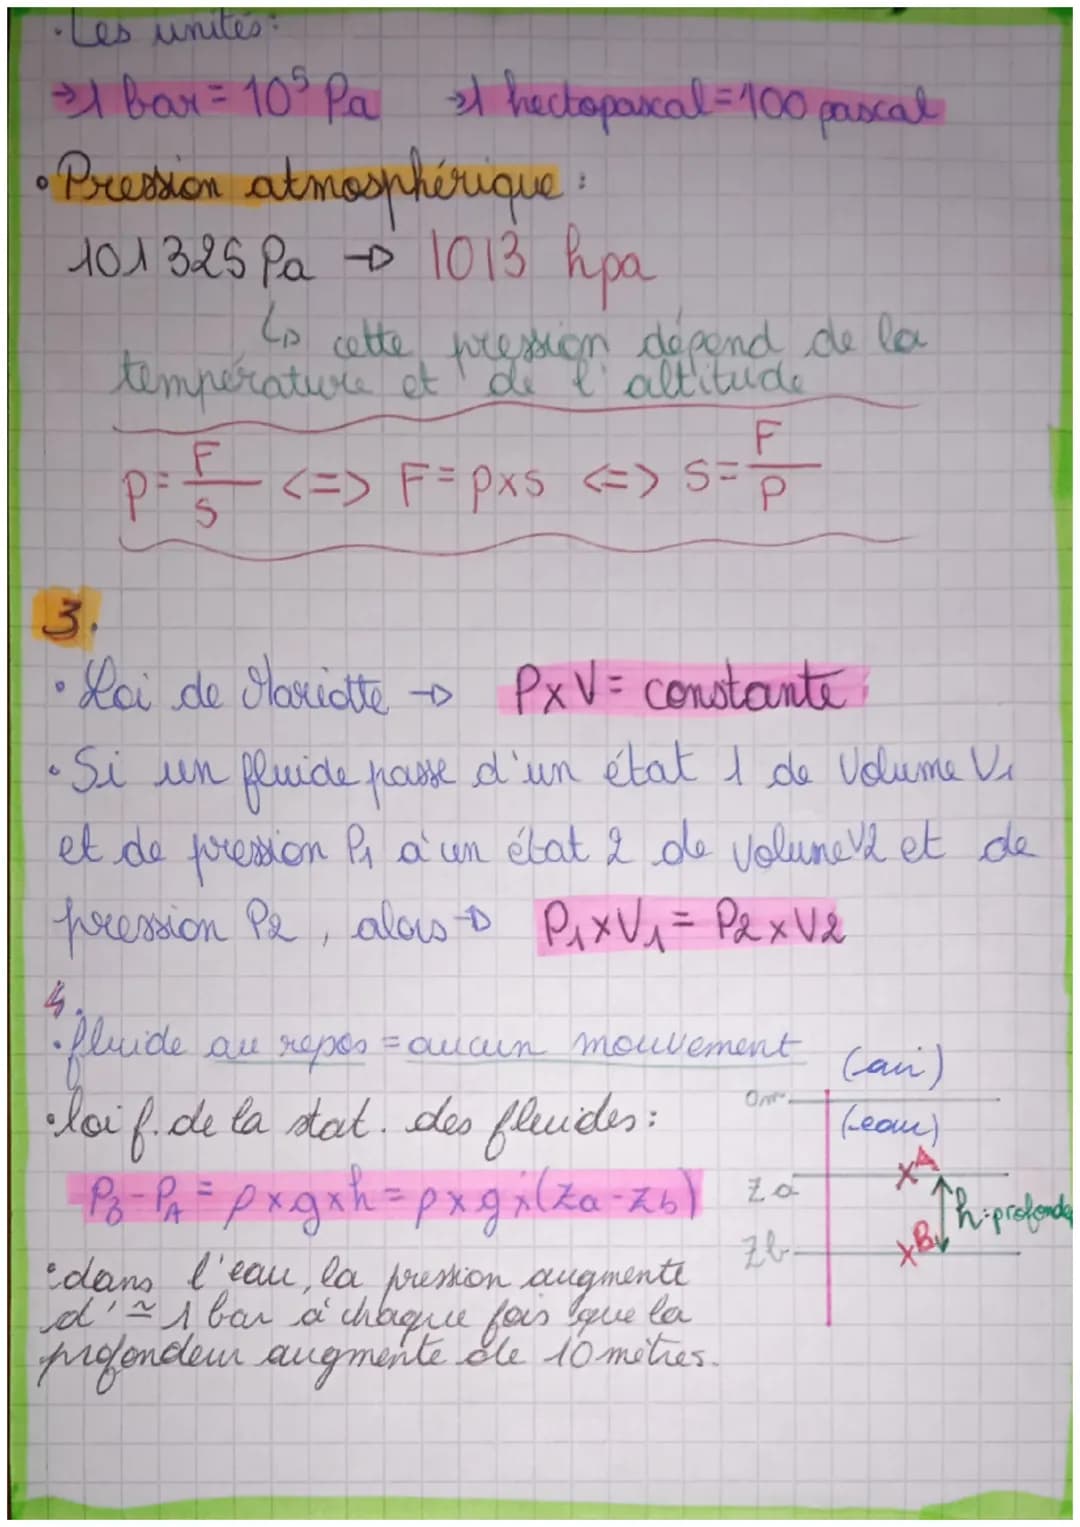 • Les unités:
→1 bar = 10⁵ Pa →1 hectopascal = 100 pascal
• Pression atmosphérique :
101325 Pa → 1013 hpa
↳ cette pression dépend de la
température et de l'altitude
P = F/S <=> F = p x s <=> S = F/P
3.
• Loi de Mariotte → P x V = constante
• Si un fluide passe d'un état 1 de Volume V1
et de pression P1 à un état 2 de volume V2 et de
pression P2, alors → P1 x V1 = P2 x V2
4.
• fluide au repos = aucun mouvement
(air)
0m
• loi f. de la stat. des fluides:
(eau)
PB - PA = ρ x g x h = ρ x g x (Za - Zb)
Za
xA
h: profonde
Zb
xB
• dans l'eau, la pression augmente
d' ≃ 1 bar à chaque fois que la
profondeur augmente de 10 mètres.